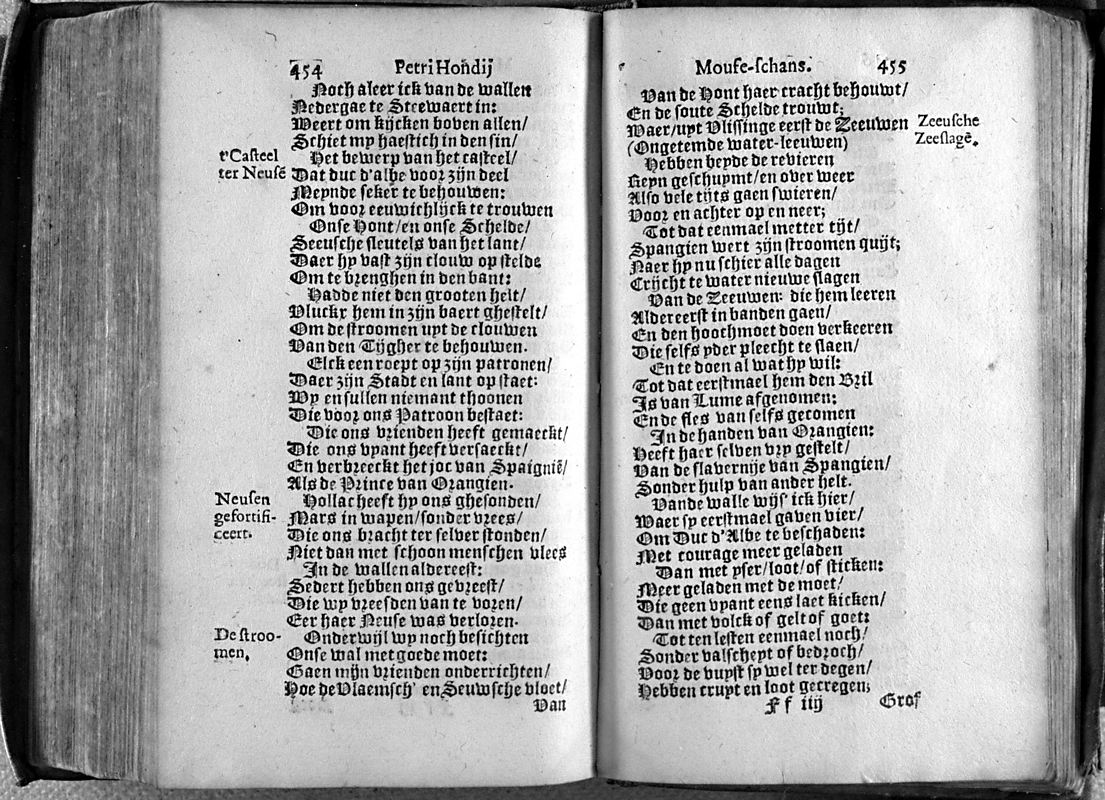 454 Petri Hondij
Noch aleer ick van de wallen
Nedergae te Steewaert in:
Weert om kijcken boven allen/
Schiet my haestich in den sin/
t'Casteel
ter Neusẽ
Het bewerp van het casteel/
Dat duc d'albe voor zijn deel
Meynde seker te behouwen:
Om voor eeuwichlijck te trouwen
Onse Hont/en onse Schelde/
Seeusche sleutels van het lant/
Daer hy vast zijn clouw op stelde
Om te brenghen in den bant:
Hadde niet den grooten helt/
Pluckr hem in zijn baert ghestelt/
Om de stroomen uyt de clouwen
Van den Tijgher te behouwen.
Elck een roept op zijn patronen/
Daer zijn Stadt en lant op staet:
Wy en sullen niemant thoonen
Die voor ons Patroon bestaet:
Die ons vrienden heeft gemaeckt/
Die ons vyant heeft versaeckt/
En verbreeckt het joc van Spaigniẽ/
Als de Prince van Orangien.
Neusen
gefortifi-
ceert.
Hollac heeft hy ons ghesonden/
Mars in wapen/sonder vrees/
Die ons bracht ter selver stonden/
Niet dan met schoon menschen vlees
In de wallen aldereest:
Sedert hebben ons gevreest/
Die wy vreesden van te voren/
Eer haer Neuse was verloren.
De stroo-
men.
Onderwijl wy noch besichten
Onse wal met goede moet:
Gaen mijn vrienden onderrichten/
Hoe de Vlaemsch' en Seuwsche vloet/
Van
Mouse-schans. 455
Van de Hont haer cracht behouwt/
En de soute Schelde trouwt;
Waer/uyt Vlissinge eerst de Zeeuwen
(Ongetemde water-leeuwen)
Zeeusche
Zeeslagẽ.
Hebben beyde de revieren
Reyn geschuymt/en over weer
Also vele tijts gaen swieren/
Voor en achter op en neer;
Tot dat eenmael metter tijt/
Spangien wert zijn stroomen quijt;
Naer hy nu schier alle dagen
Crijcht te water nieuwe slagen
Van de Zeeuwen: die hem leeren
Aldereerst in banden gaen/
En den hoochmoet doen verkeeren
Die selfs yder pleecht te slaen/
En te doen al wat hy wil:
Tot dat eerstmael hem den Bril
Is van Lume afgenomen:
En de sles van selfs gecomen
In de handen van Orangien:
Heeft haer selven vry gestelt/
Van de slavernije van Spangien/
Sonder hulp van ander helt.
Vande walle wijs' ick hier/
Waer sy eerstmael gaven vier/
Om Duc d'Albe te beschaden:
Met courage meer geladen
Dan met yser/loot/of sticken:
Meer geladen met de moet/
Die geen vyant eens laet kicken/
Dan met volck of gelt of goet:
Tot ten lesten eenmael noch/
Sonder valscheyt of bedroch/
Voor de vuyst sy wel ter degen/
Hebben cruyt en loot gecregen;
F f iiij Grof